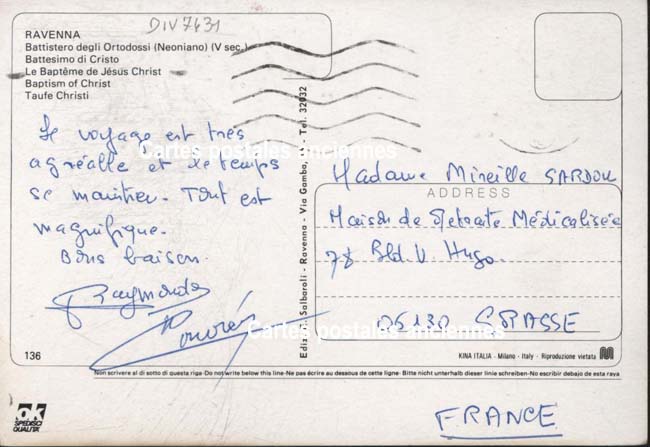 DIV7631
RAVENNA
Battistero degli Ortodossi (Neoniano) (V sec.)
Battesimo di Cristo
Le Baptême de Jésus Christ
Baptism of Christ
Taufe Christi
Le voyage est très
agréable et le temps
se maintien. Tout est
magnifique.
Bons baisers.
Raymonde
Cartes postales anciennes
Edizioni Salbaroli - Ravenna - Via Gamba, - Tel. 32032
Madame Mireille SARDOU
ADDRESS
Maison de Retraite Médicalisée
78 Bld. V. Hugo.
06130 GRASSE
Cartes postales anciennes
136
KINA ITALIA - Milano - Italy - Riproduzione vietata
Non scrivere al di sotto di questa riga-Do not write below this line-Ne pas écrire au dessous de cette ligne- Bitte nicht unterhalb dieser linie schreiben-No escribir debajo de esta raya
ok
SPEDISCI
QUALITA'
FRANCE